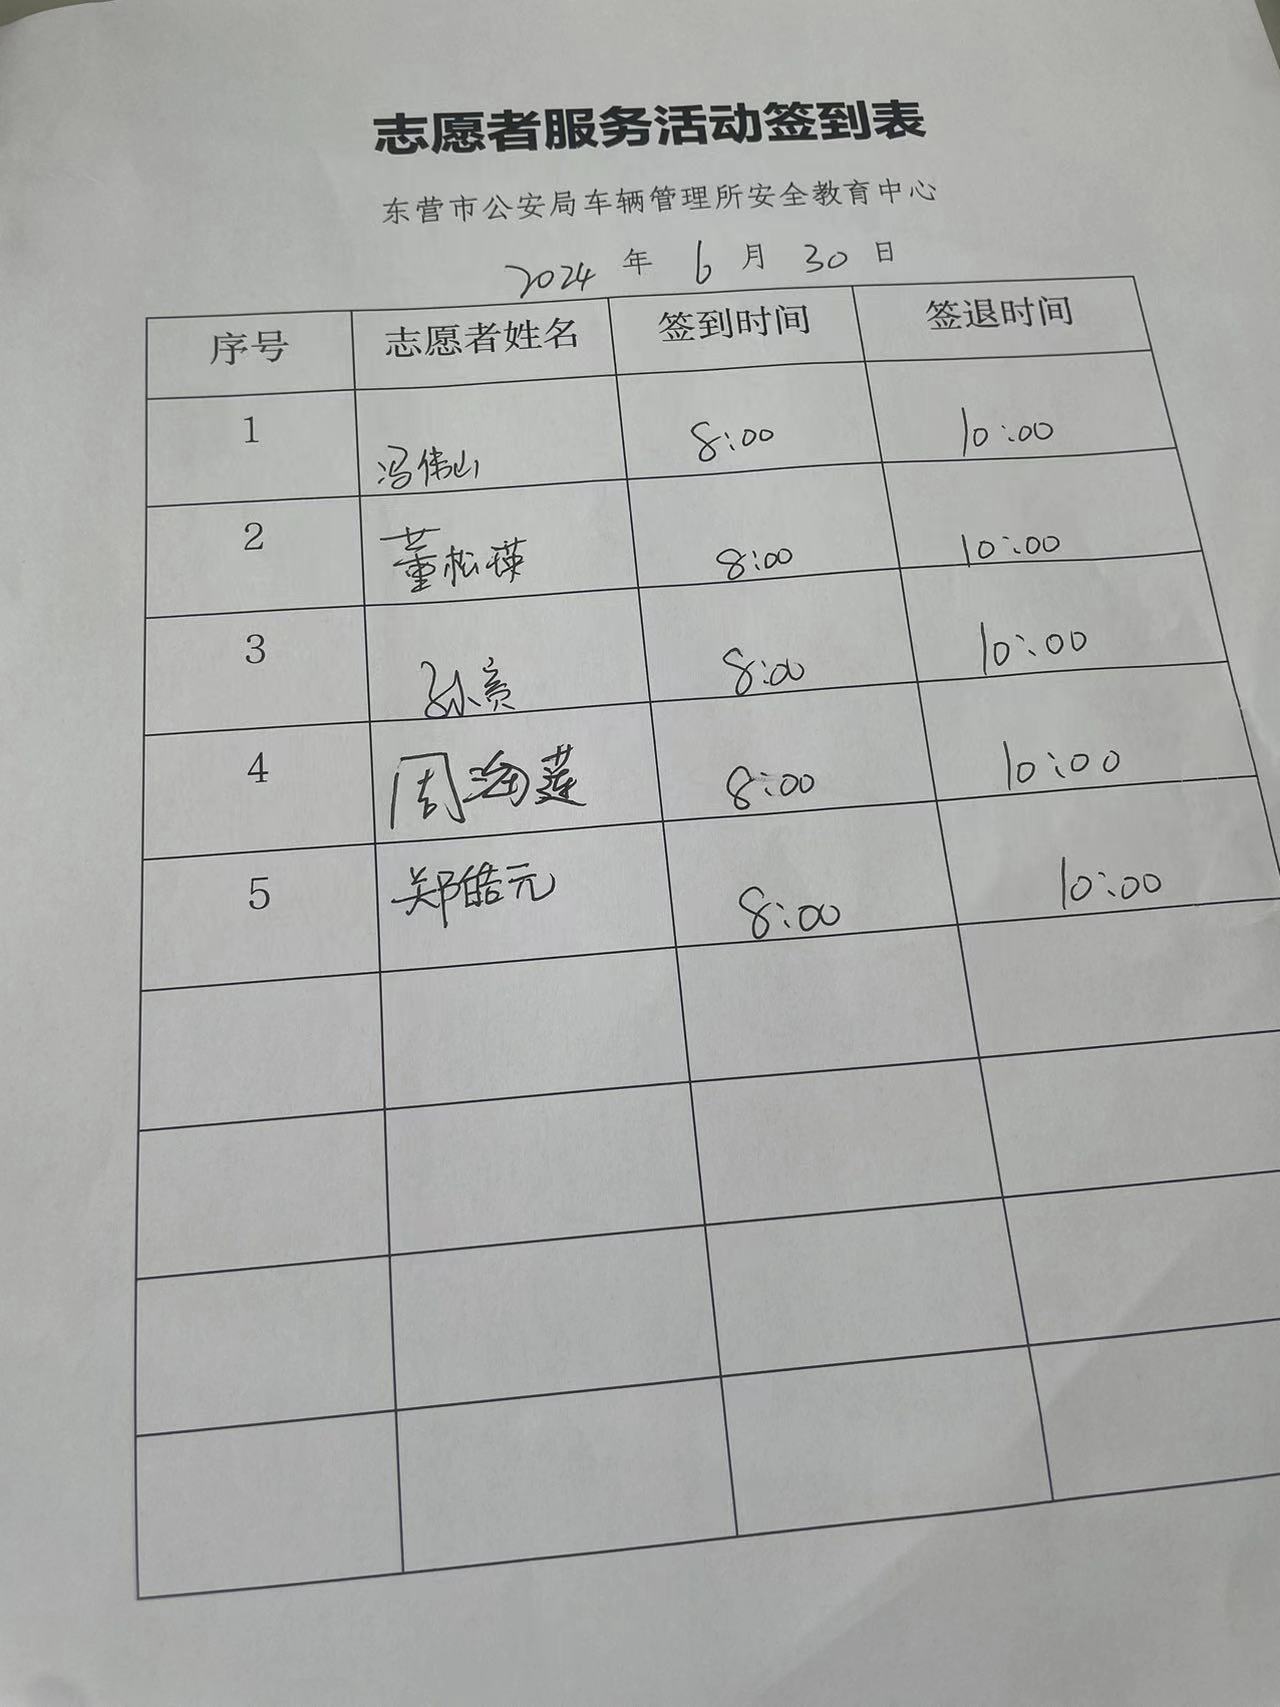 志愿者服务活动签到表
东营市公安局车辆管理所安全教育中心
2024 年 6 月 30 日
序号 志愿者姓名 签到时间 签退时间
1 冯伟山 8:00 10:00
2 董松瑛 8:00 10:00
3 孙亮 8:00 10:00
4 周海莲 8:00 10:00
5 郑皓元 8:00 10:00